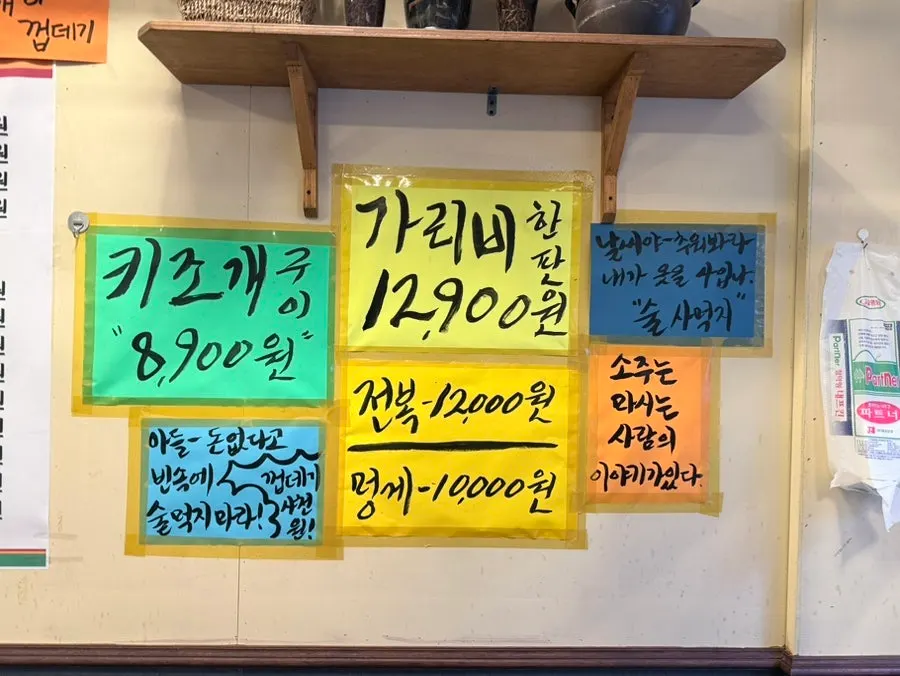 껍데기
원
원
원
원
원
원
원
키조개 구이
"8,900원"
가리비 한판
12,900원
날씨야-추워봐라
내가 옷을 사입나.
"술 사먹지"
전복-12,000원
멍게-10,000원
소주는
마시는
사람의
이야기가있다.
아들-돈없다고
빈속에
술먹지마라!
껍데기
사천
원!
Partner
Partner
파트너